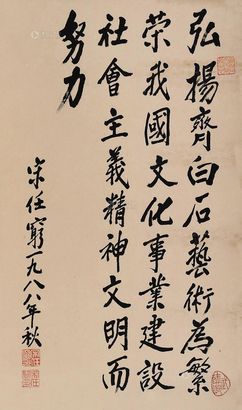 弘揚齊白石藝術為繁
榮我國文化事業建設
社會主義精神文明而
努力
宋任窮一九八八年秋